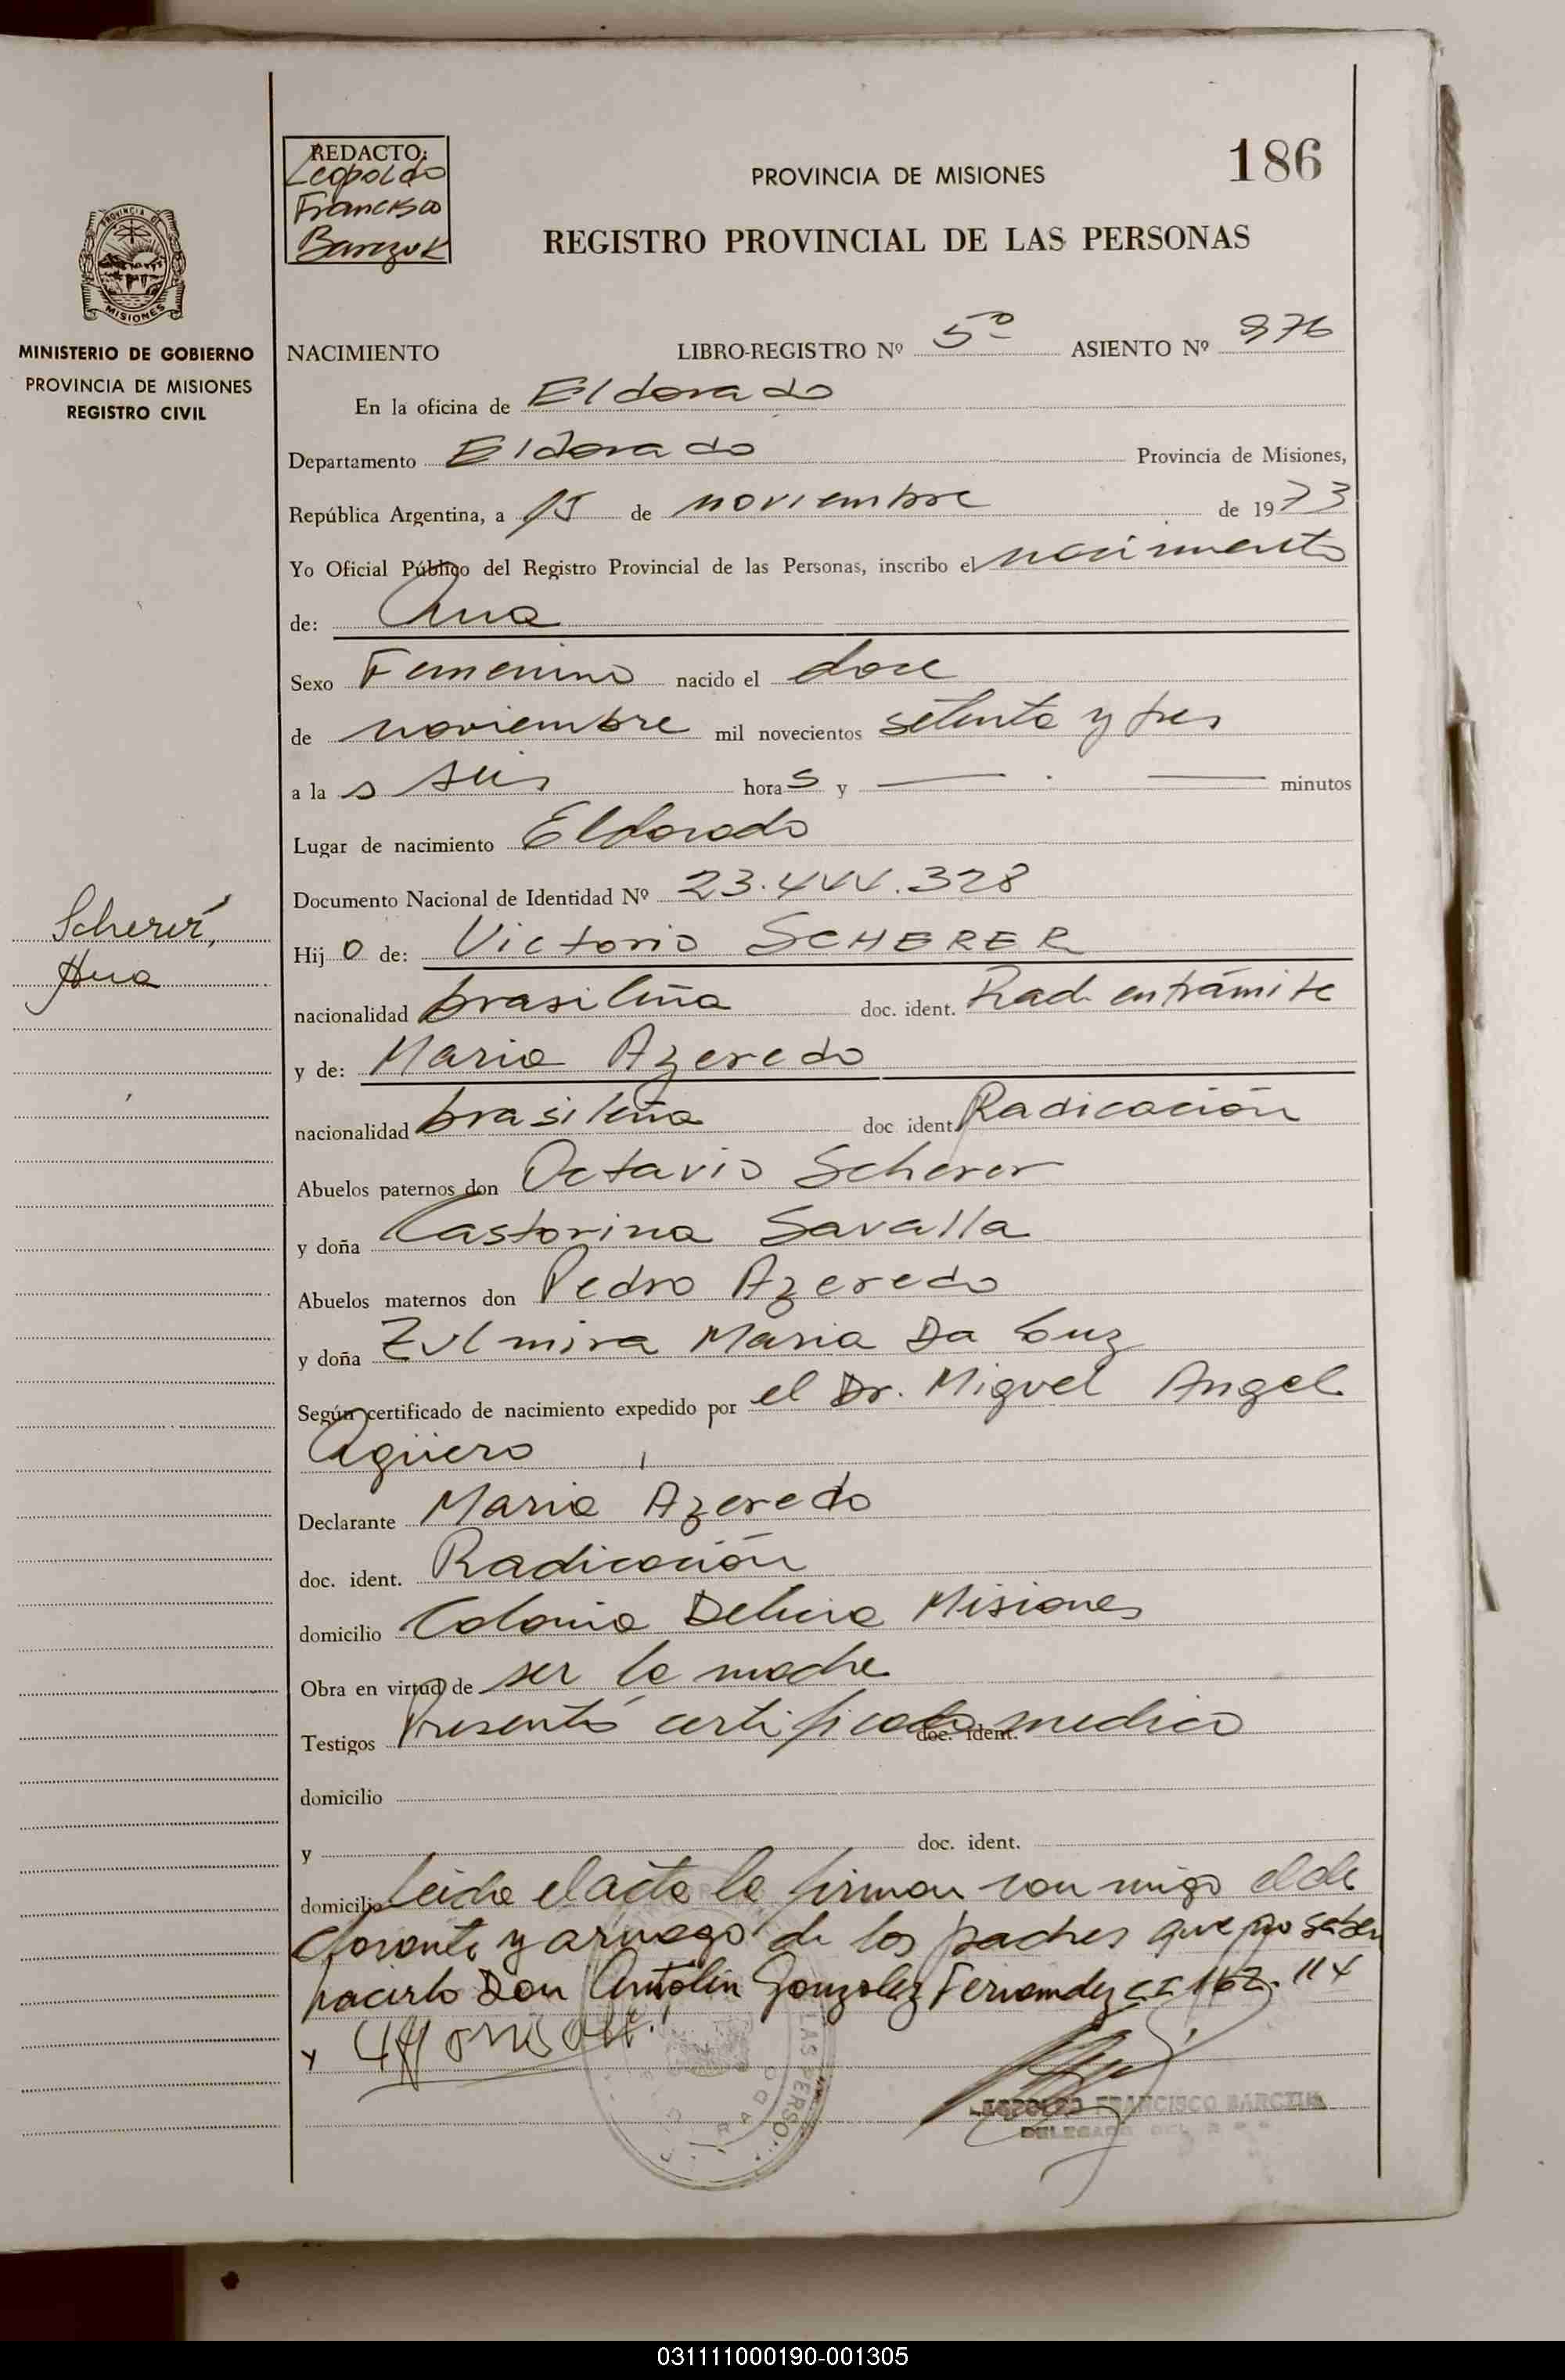 REDACTO:
Leopoldo
Francisco
Barczuk
186
PROVINCIA DE MISIONES
REGISTRO PROVINCIAL DE LAS PERSONAS
PROVINCIA DE
MISIONES
MINISTERIO DE GOBIERNO
PROVINCIA DE MISIONES
REGISTRO CIVIL
NACIMIENTO LIBRO-REGISTRO Nº 5º ASIENTO Nº 976
En la oficina de Eldorado
Departamento Eldorado Provincia de Misiones,
República Argentina, a 15 de noviembre de 1973
Yo Oficial Público del Registro Provincial de las Personas, inscribo el nacimiento
de: Ana
Sexo Femenino nacido el doce
de noviembre mil novecientos setenta y tres
a la s seis hora s y — . — minutos
Lugar de nacimiento Eldorado
Documento Nacional de Identidad Nº 23.444.328
Scherer,
Ana
Hij o de: Victorio SCHERER
nacionalidad brasileña doc. ident. Rad. en trámite
y de: Maria Azeredo
nacionalidad brasileña doc ident. Radicación
Abuelos paternos don Octavio Scherer
y doña Castorina Savalla
Abuelos maternos don Pedro Azeredo
y doña Zulmira Maria Da Luz
Según certificado de nacimiento expedido por el Dr. Miguel Angel
Agüero
Declarante Maria Azeredo
doc. ident. Radicación
domicilio Colonia Delicia Misiones
Obra en virtud de ser la madre
Testigos Presentó certificado doc. ident. medico
domicilio
y doc. ident.
domicilio Leida el acta la firman con migo el de
clarante y a ruego de los padres que no saben
hacerlo Don Antolin Gonzalez Fernandez CI 162.114
LAS PERSO
LEOPOLDO FRANCISCO BARCZUK
DELEGADO DEL
031111000190-001305